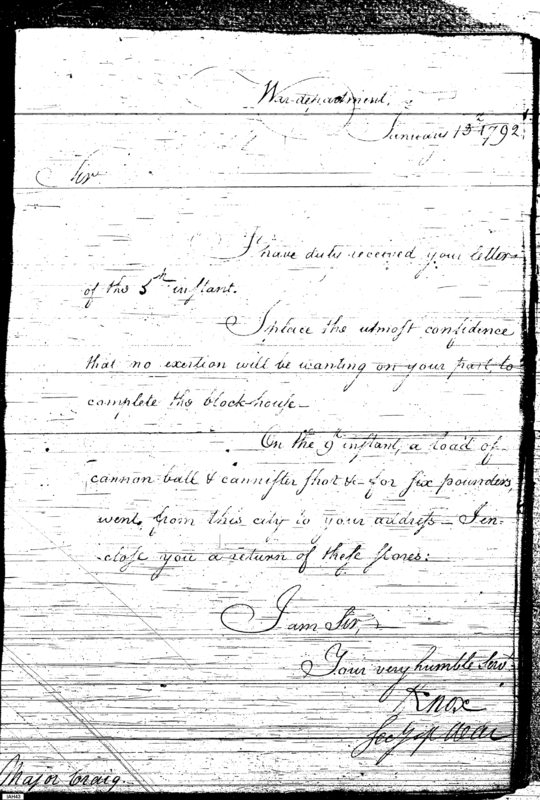 War department,
January 13 1792
Sir
I have duly received your letter
of the 5th instant.
I place the utmost confidence
that no exertion will be wanting on your part, to
complete the block-house—
On the 9th instant, a load of
cannon ball & cannister shot &c for six pounders,
went, from this city to your address— I en-
close you a return of these stores:
I am Sir,
Your very humble Servt
Knox
Secy of War
Major Craig.
IAH43